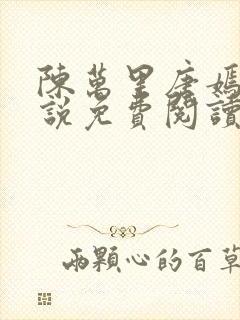 陳萬里唐嫣
說免費閱讀
兩顆心的百草